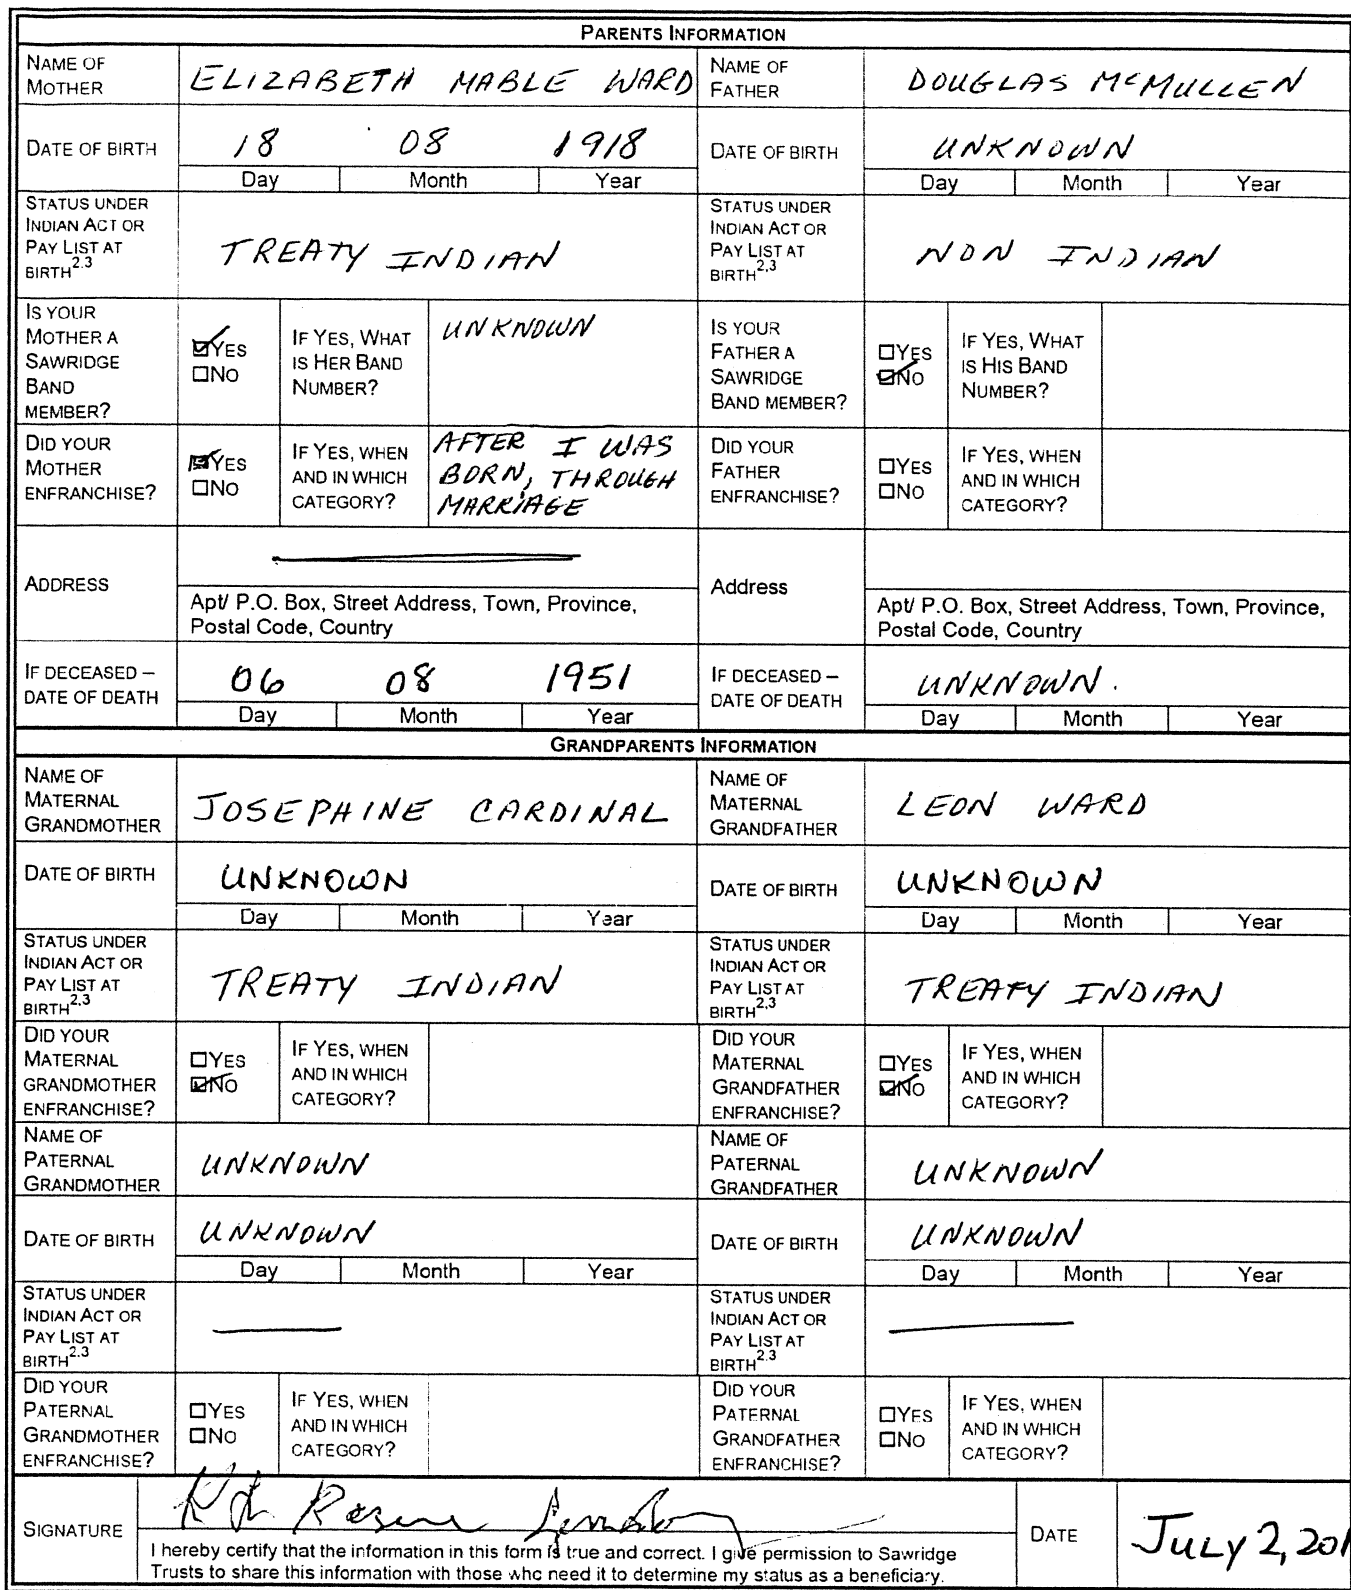 PARENTS INFORMATION
NAME OF MOTHER ELIZABETH MABLE WARD NAME OF FATHER DOUGLAS McMULLEN
DATE OF BIRTH 18 08 1918 DATE OF BIRTH UNKNOWN
Day Month Year Day Month Year
STATUS UNDER INDIAN ACT OR PAY LIST AT BIRTH2,3 TREATY INDIAN STATUS UNDER INDIAN ACT OR PAY LIST AT BIRTH2,3 NON INDIAN
IS YOUR MOTHER A SAWRIDGE BAND MEMBER? ☑YES ☐NO IF YES, WHAT IS HER BAND NUMBER? UNKNOWN IS YOUR FATHER A SAWRIDGE BAND MEMBER? ☐YES ☑NO IF YES, WHAT IS HIS BAND NUMBER?
DID YOUR MOTHER ENFRANCHISE? ☑YES ☐NO IF YES, WHEN AND IN WHICH CATEGORY? AFTER I WAS BORN, THROUGH MARRIAGE DID YOUR FATHER ENFRANCHISE? ☐YES ☐NO IF YES, WHEN AND IN WHICH CATEGORY?
ADDRESS Apt/ P.O. Box, Street Address, Town, Province, Postal Code, Country Address Apt/ P.O. Box, Street Address, Town, Province, Postal Code, Country
IF DECEASED – DATE OF DEATH 06 08 1951 IF DECEASED – DATE OF DEATH UNKNOWN.
Day Month Year Day Month Year
GRANDPARENTS INFORMATION
NAME OF MATERNAL GRANDMOTHER JOSEPHINE CARDINAL NAME OF MATERNAL GRANDFATHER LEON WARD
DATE OF BIRTH UNKNOWN DATE OF BIRTH UNKNOWN
Day Month Year Day Month Year
STATUS UNDER INDIAN ACT OR PAY LIST AT BIRTH2,3 TREATY INDIAN STATUS UNDER INDIAN ACT OR PAY LIST AT BIRTH2,3 TREATY INDIAN
DID YOUR MATERNAL GRANDMOTHER ENFRANCHISE? ☐YES ☑NO IF YES, WHEN AND IN WHICH CATEGORY? DID YOUR MATERNAL GRANDFATHER ENFRANCHISE? ☐YES ☑NO IF YES, WHEN AND IN WHICH CATEGORY?
NAME OF PATERNAL GRANDMOTHER UNKNOWN NAME OF PATERNAL GRANDFATHER UNKNOWN
DATE OF BIRTH UNKNOWN DATE OF BIRTH UNKNOWN
Day Month Year Day Month Year
STATUS UNDER INDIAN ACT OR PAY LIST AT BIRTH2,3 — STATUS UNDER INDIAN ACT OR PAY LIST AT BIRTH2,3 —
DID YOUR PATERNAL GRANDMOTHER ENFRANCHISE? ☐YES ☐NO IF YES, WHEN AND IN WHICH CATEGORY? DID YOUR PATERNAL GRANDFATHER ENFRANCHISE? ☐YES ☐NO IF YES, WHEN AND IN WHICH CATEGORY?
SIGNATURE DATE JULY 2, 201
I hereby certify that the information in this form is true and correct. I give permission to Sawridge
Trusts to share this information with those who need it to determine my status as a beneficiary.